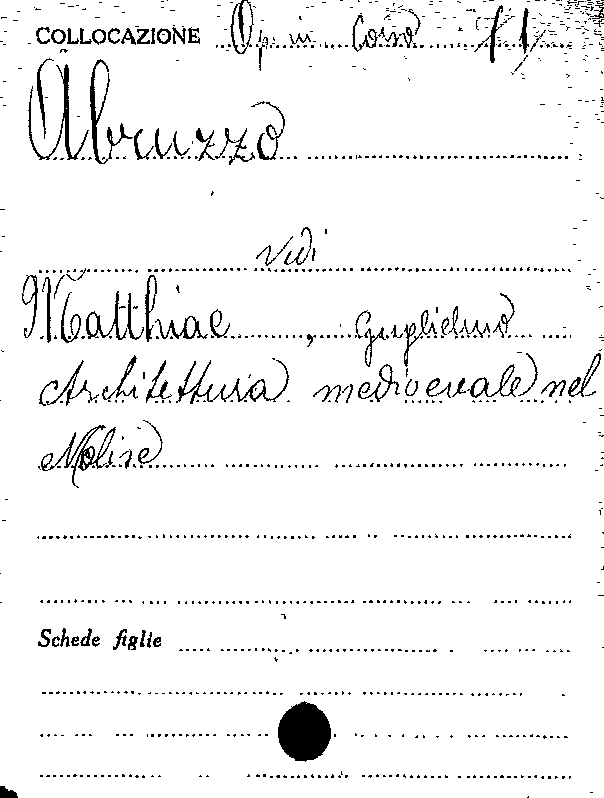 COLLOCAZIONE Op. in Corso 11
Abruzzo
Vedi
Matthiae, Guglielmo
Architettura medioevale nel
Molise
Schede figlie